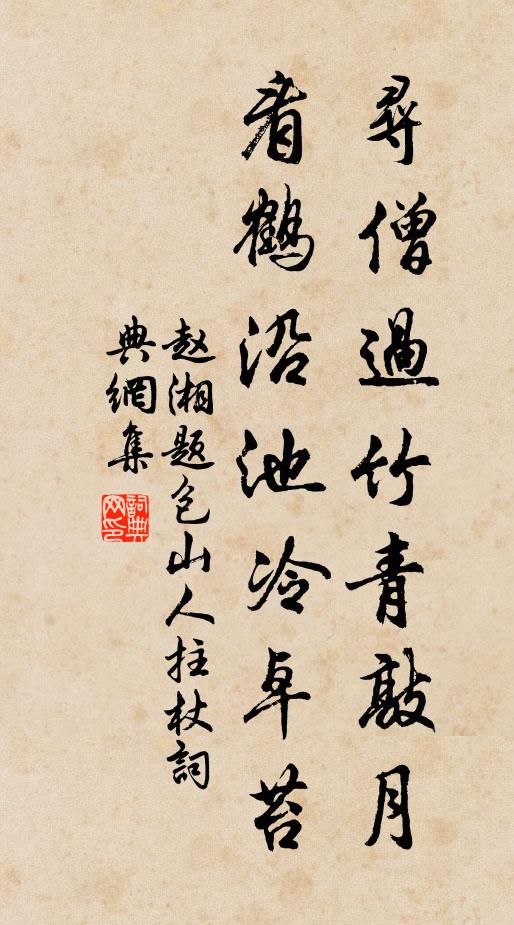 尋僧過竹青敲月
看鶴沿池冷卓苔
赵湘题包山人拄杖詞
典網集
詞典网印